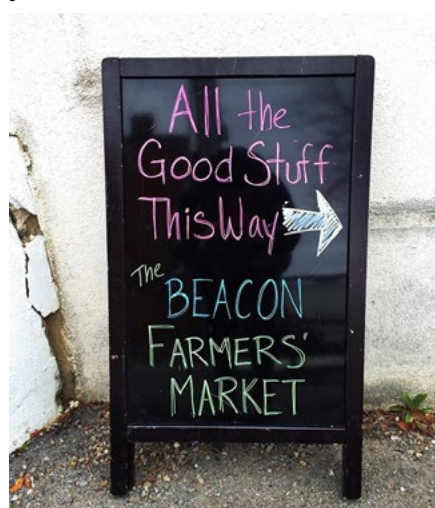 All the
Good Stuff
This Way
The
BEACON
FARMERS'
MARKET